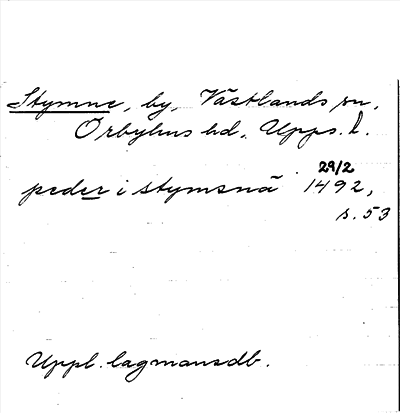 Stymne, by, Västlands sn,
Örbyhus hd, Upps. l.
29/2
peder i stymsnä 1492,
s. 53
Uppl. lagmansdb.